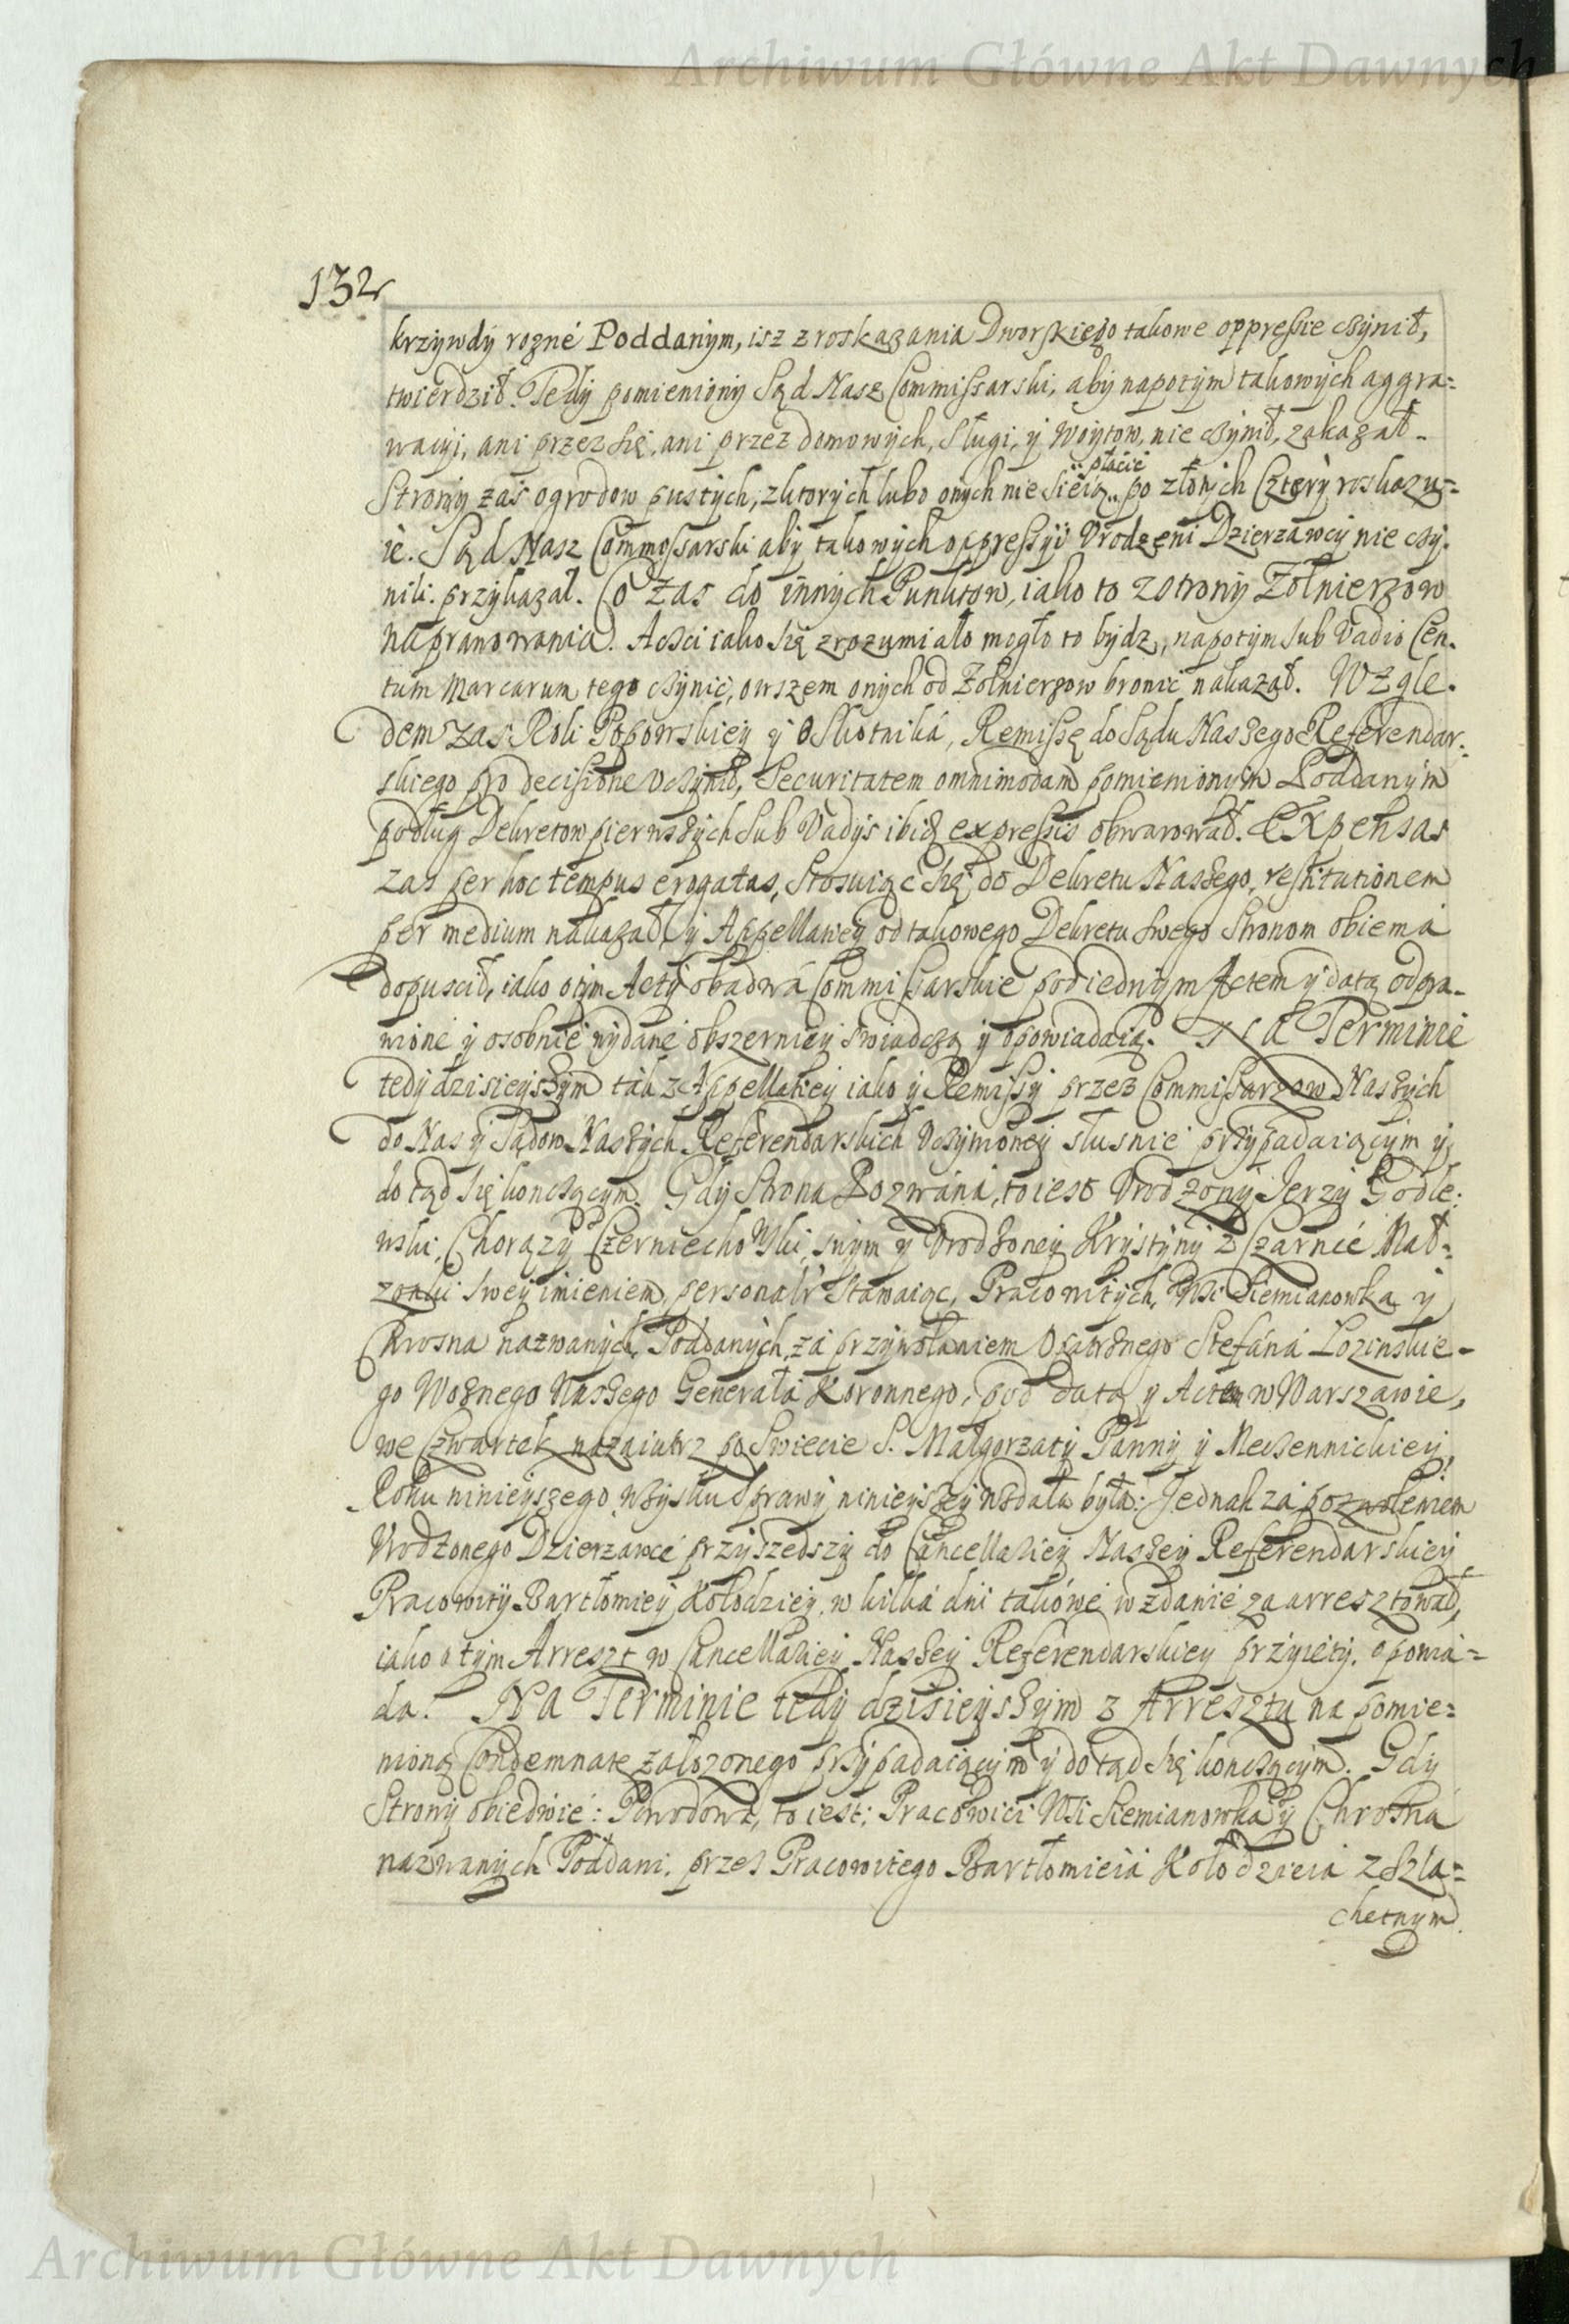 Archiwum Główne Akt Dawnych
132
krzywdy rozne Poddanym, isz z roskazania Dworskiego takowe oppressie czynił,
twierdził. Tedy pomieniony Sąd Nasz Commissarski, aby napotym takowych aggra=
wacyi, ani przez się, ani przez domowych, Sługi, y Woytow, nie czynił, zakazał.
Strony zaś ogrodow pustych, z ktorych lubo onych nie sieią płacić po złotych Cztery roskazu=
ie. Sąd Nasz Commissarski aby takowych oppressyi Vrodzeni Dzierzawcy nie czy.
nili. przykazał. Co zas do innych Punktow, iako to z strony Zołnierzow
naprowowania. Acści iako się zrozumiało mogło to bydz, napotym sub Vadio Cen.
tum Marcarum tego czynić, owszem onych od Zołnierzow bronić nakazał. Wzgle.
dem zas Roli Popowskiey y o Skotniká, Remissę do Sądu Naszego Referendar:
skiego pro decisione vczynił, Securitatem omnimodam pomienionym Poddanym
podług Dekretow pierwszych sub Vadys ibiq expressis obwarował. Expensas
zas per hoc tempus erogatas, Stosuiąc się do Dekretu Naszego, restitutionem
per medium nakazał, y Appellacyey od takowego Dekretu swego Stronom obiemá
dopuscił, iako o tym Acty obadwá Commissarskie pod iednym Actem y datą odpra=
wione y osobnie wydane obszerniey swiadczą y opowiadaią. Na Terminie
tedy dzisieyszym tak z Appellacyey iako y Remissy przez Commissarzow Naszych
do Nas y Sądow Naszych Referendarskich vczynioney słusnie przypadaiącym y
do tąd się konczącym. Gdy Strona Pozwána, to iest Vrodzony Jerzy Godle:
wski, Chorązy Czerniechowski, swym y Vrodzoney Krystyny z Czarnce Mał=
zonki swey imieniem, personalr stawaiąc, Pracowitych, Wsi Siemianowka y
Chrosna nazwanych, Poddanych, zá przywołaniem Opatrznego Stefáná Lozinskie=
go Woznego Naszego Generałá Koronnego, pod datą y Actem w Warszawie,
we Czwartek nazaiutrz po Swiecie S. Małgorzaty Panny y Męczennickiey,
Roku ninieyszego, wzysku sprawy ninieyszey wzdała była: Jednak zá pozwoleniem
Vrodzonego Dzierżawce przyszedszy do Cancellariey Naszey Referendarskiey
Pracowity Bartłomiey Kołodziey, w kilká dni takowe wzdanie zaarresztował,
iako o tym Arreszt w Cancellariey Naszey Referendarskiey przyięty, opowia=
da. Na Terminie tedy dzisieyszym z Arresztu na pomie=
nioną Condemnatę założonego przypadaiącym y do tąd się konczącym. Gdy
Strony obiedwie: Powodowa, to iest: Pracowici Wsi Siemianowka y Chrosna
nazwanych Poddani, przez Pracowitego Bartłomieia Kołodzieia z Szla=
chetnym
Archiwum Główne Akt Dawnych